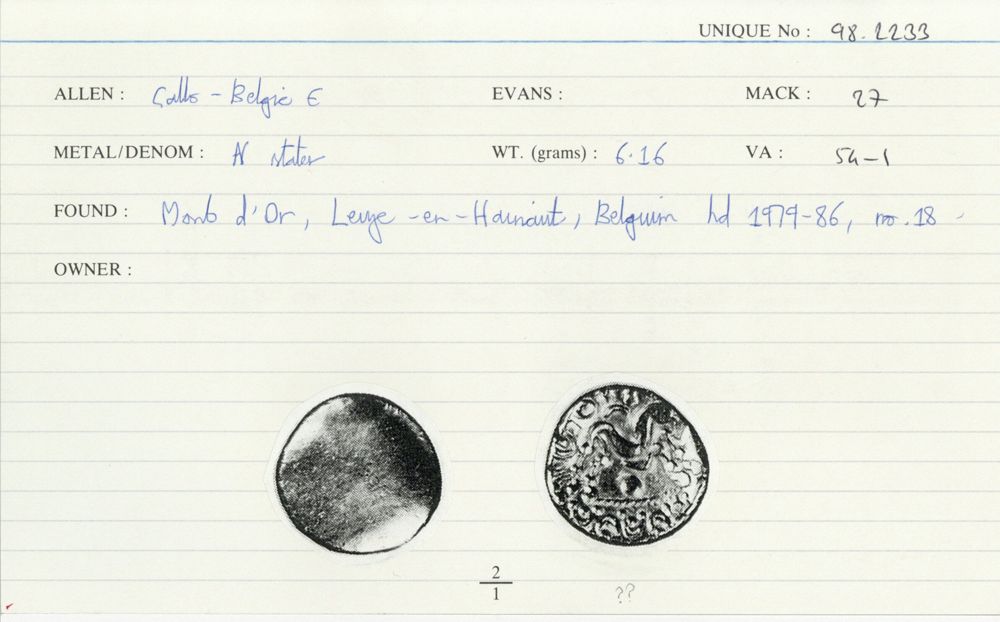 UNIQUE No : 98.2233
ALLEN : Gallo-Belgic E EVANS : MACK : 27
METAL/DENOM : N stater WT. (grams) : 6.16 VA : 54-1
FOUND : Mont d'Or, Leuze-en-Hainaut, Belguim hd 1979-86, no.18
OWNER :
2
1 ??